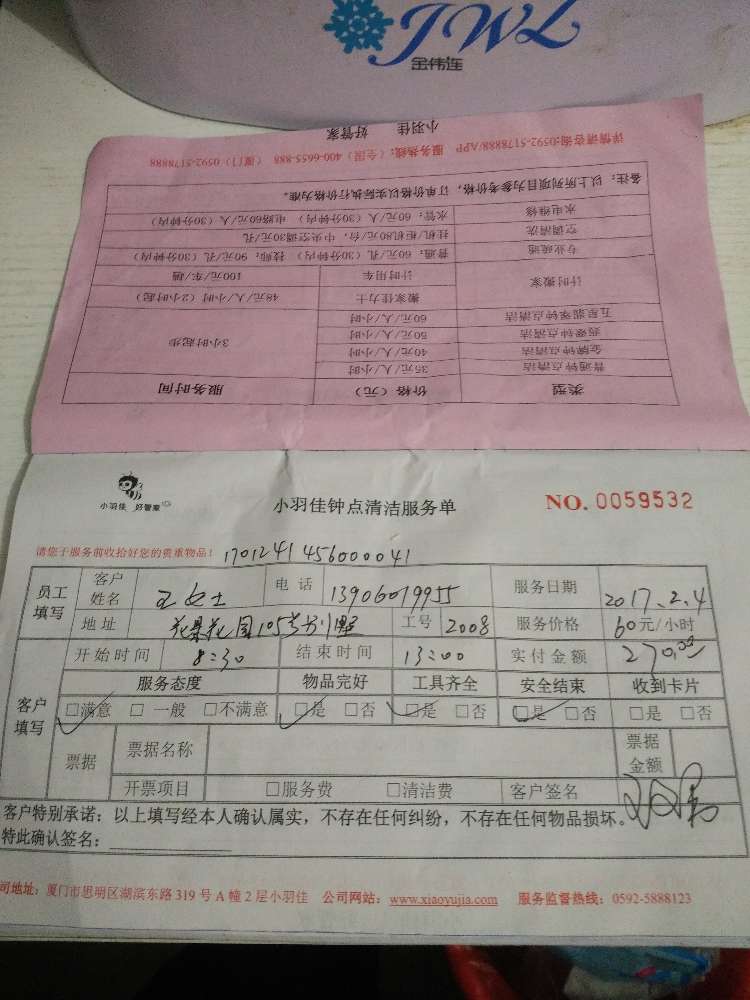 JWL
金伟连
小羽佳 好管家
详情请咨询:0592-5178888/APP 服务热线:（全国）400-6655-888 （厦门）0592-5178888
类型 价格（元） 服务时间
普通钟点清洁 35元/人/小时 3小时起步
金牌钟点清洁 40元/人/小时
翡翠钟点清洁 50元/人/小时
五星翡翠钟点清洁 60元/人/小时
计时搬家 搬家佳力士 48元/人/小时（2小时起）
计时用车 100元/车/趟
专业疏通 普通：60元/孔（30分钟内） 技师：90元/孔（30分钟内）
空调清洗 挂机/柜机80元/台，中央空调30元/孔
水电维修 水管：60元/人（30分钟内） 电路60元/人（30分钟内）
备注：以上所列项目为参考价格，订单价格以实际执行价格为准。
小羽佳 好管家
小羽佳钟点清洁服务单
NO. 0059532
请您于服务前收拾好您的贵重物品！ 170124145600041
员工填写 客户姓名 王女士 电话 13906019955 服务日期 2017.2.4
地址 花园105号别墅 工号 2008 服务价格 60元/小时
客户填写 开始时间 8:30 结束时间 13:00 实付金额 270.00
服务态度 物品完好 工具齐全 安全结束 收到卡片
□满意 □一般 □不满意 □是 □否 □是 □否 □是 □否 □是 □否
票据 票据名称 票据金额
开票项目 □服务费 □清洁费 客户签名
客户特别承诺：以上填写经本人确认属实，不存在任何纠纷，不存在任何物品损坏。
特此确认签名：
司地址：厦门市思明区湖滨东路319号A幢2层小羽佳 公司网站：www.xiaoyujia.com 服务监督热线：0592-5888123